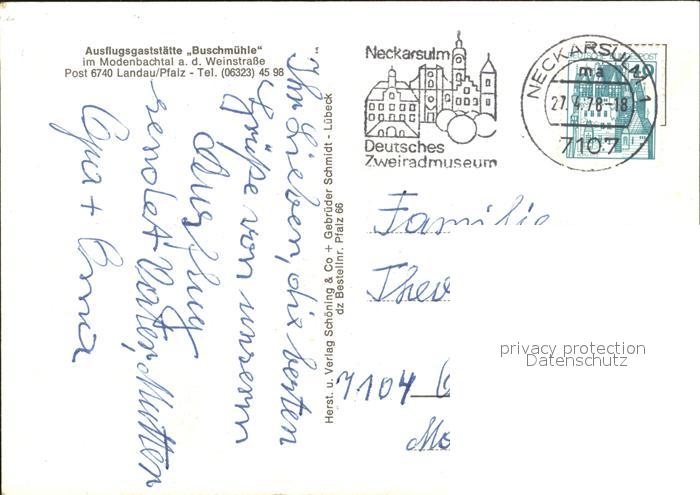 Ausflugsgaststätte „Buschmühle“
im Modenbachtal a. d. Weinstraße
Post 6740 Landau/Pfalz - Tel. (06323) 45 98
Ihr Lieben, die besten
Grüße von unserem
Ausflug
sendet Vater, Mutter
Opa + Oma
Herst. u. Verlag Schöning & Co + Gebrüder Schmidt - Lübeck
dz Bestellnr. Pfalz 66
Neckarsulm
Deutsches
Zweiradmuseum
NECKARSULM 1
ma
27.4.78-18
7107
40
Familie
7104
privacy protection
Datenschutz